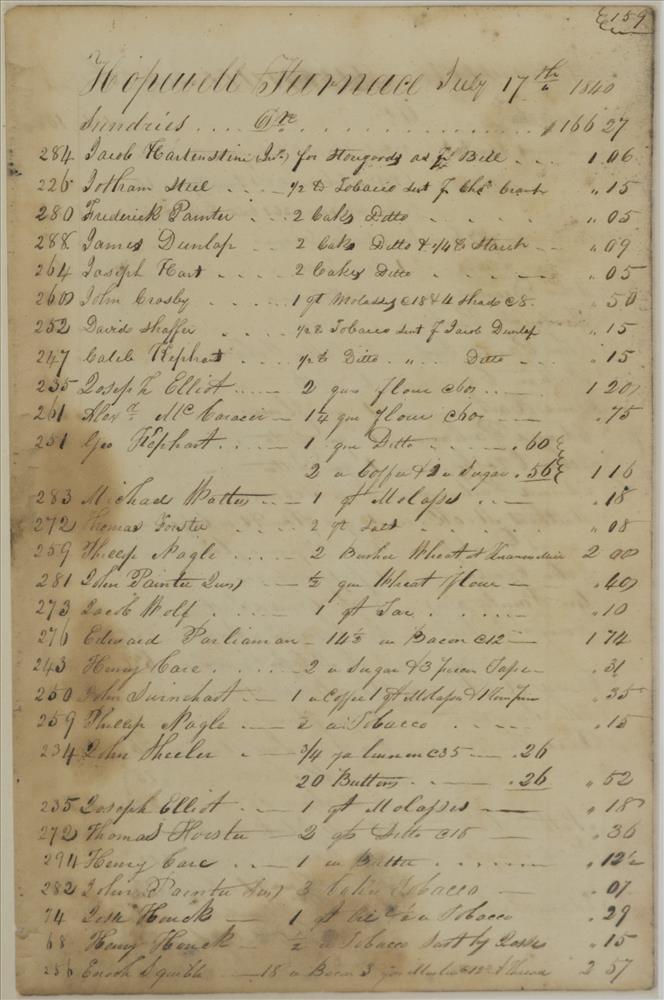 159
Hopewell Furnace July 17th 1840
Sundries .... Cr. ............ $166 27
284 Jacob Hartenstine (Jnr) for as pr Bill ... 1.06
226 Jotham Steel .... 1/2 lb Tobacco Sent pr Chs ,, 15
280 Frederick Painter ... 2 Cakes Ditto .... ,, 05
288 James Dunlap ... 2 Cakes Ditto & 1/4 lb Starch .. ,, 09
264 Joseph Hart .... 2 Cakes Ditto .... ,, 05
260 John Crosby .... 1 qt Molasses c18 & 4 Shads c8. . 50
252 David Shaffer .... 1/2 lb Tobacco Sent pr Jacob Dunlap ,, 15
247 Caleb Kephart .... 1/2 lb Ditto .. ,, .. Ditto .. ,, 15
235 Joseph Elliot .... 2 qrs flour c60 .. 1 20
261 Alexr Mc — 1 1/4 qrs flour c60 — . 75
251 Geo Kephart .... 1 qrs Ditto .... . 60
2 ,, Coffee & 2 ,, Sugar . 56 1 16
283 Michael Watters — 1 qt Molasses ... . 18
272 Thomas Forster .. 2 qt Salt .... ,, 08
259 Phillip Nagle ... 2 Bushel Wheat at 2 00
281 John Painter (Jnr) — 1/2 qrs Wheat flour — . 40
273 Jacob Wolf .... 1 qt Tar .... . 10
276 Edward Parliaman — 14 1/2 ,, Bacon c12 — 1 74
243 Henry Care ..... 2 ,, Sugar & 3 Tape — . 31
250 John — 1 ,, Coffee 1 qt Molasses & 1 . 35
259 Phillip Nagle — 1/2 ,, Tobacco .... . 15
234 John Wheeler . — 3/4 c35 — . 26
20 Buttons . — . 26 ,, 52
235 Joseph Elliot .. — 1 qt Molasses — ,, 18
272 Thomas Forster — 2 qts Ditto c18 — . 36
294 Henry Care .. — 1 ,, Butter ...... . 12 1/2
282 John Painter (Snr) 3 Cakes Tobacco — . 07
74 Houck — 1 qt & 1/2 ,, Tobacco . 29
68 Henry Houck — 1/2 ,, Tobacco Sent by . 15
286 Enoch Squibb — 18 ,, Bacon 3 2 57